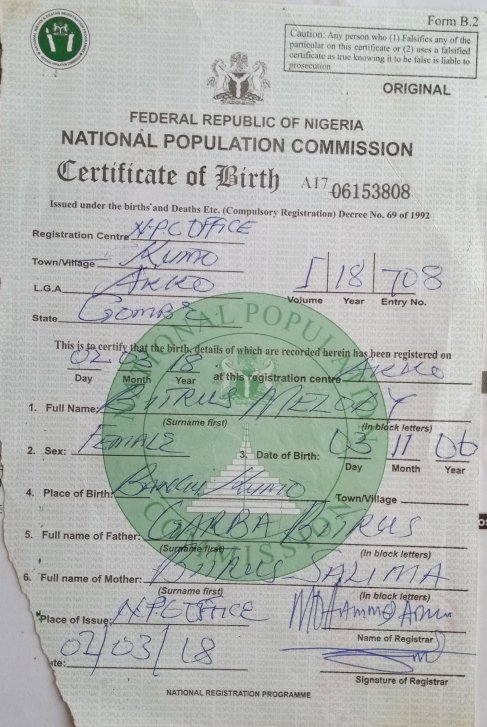 Form B.2
Caution: Any person who (1) Falsifies any of the
particular on this certificate or (2) uses a falsified
certificate as true knowing it to be false is liable to
prosecution
ORIGINAL
FEDERAL REPUBLIC OF NIGERIA
NATIONAL POPULATION COMMISSION
Certificate of Birth A17 06153808
Issued under the births and Deaths Etc. (Compulsory Registration) Decree No. 69 of 1992
Registration Centre N.P.C OFFICE
Town/Village Kumo
L.G.A AKKO
I 18 708
Volume Year Entry No.
State GOMBE
NATIONAL POPULATION COMMISSION
This is to certify that the birth, details of which are recorded herein has been registered on
02 03 18 at this registration centre AKKO
Day Month Year
1. Full Name: BITRUS MELODY
(Surname first) (In block letters)
2. Sex: FEMALE 3. Date of Birth: 03 11 06
Day Month Year
4. Place of Birth: Kumo Town/Village
5. Full name of Father: GARBA BITRUS
(Surname first) (In block letters)
6. Full name of Mother: BITRUS SALIMA
(Surname first) (In block letters)
Place of Issue: N.P.C OFFICE Mohammed
Name of Registrar
ate: 02/03/18
Signature of Registrar
NATIONAL REGISTRATION PROGRAMME